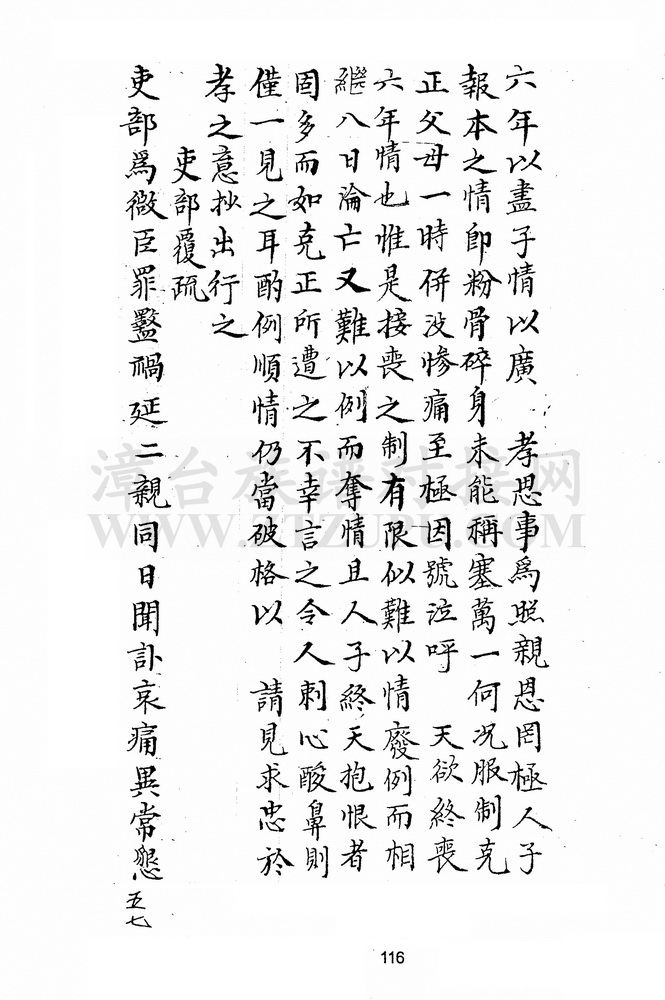 六年以盡子情以廣 孝思事爲照親恩罔極人子
報本之情卽粉骨碎身未能稱塞萬一何况服制克
正父母一時併没慘痛至極因號泣呼 天欲終喪
六年情也惟是接喪之制有限似難以情廢例而相
繼八日淪亡又難以例而奪情且人子終天抱恨者
固多而如克正所遭之不幸言之令人刺心酸鼻則
僅一見之耳酌例順情仍當破格以 請見求忠於
孝之意抄出行之
吏部覆疏
吏部爲微臣罪豔禍延二親同日聞訃哀痛異常懇
五七
漳台族谱对接网
WWW.ZTZUPU.COM
116